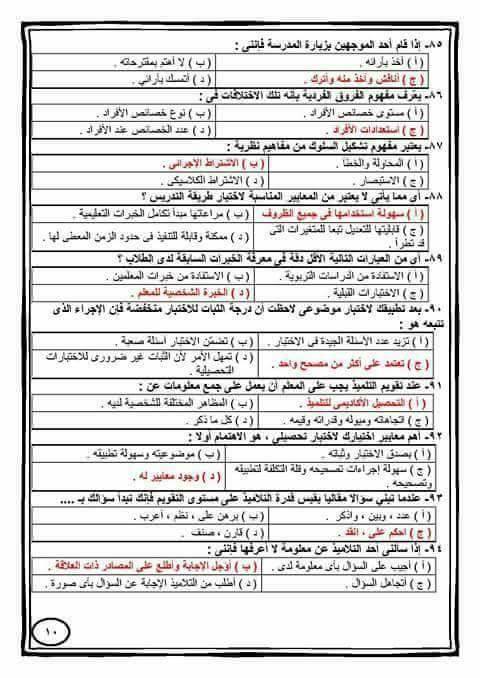 ٨٥- إذا قام أحد الموجهين بزيارة المدرسة فإننى :
( أ ) أخذ بآرائه .
( ب ) لا أهتم بمقترحاته .
( ج ) أناقش وأخذ منه وأترك .
( د ) أتمسك بآرائي .
٨٦- يعرف مفهوم الفروق الفردية بأنه تلك الاختلافات فى :
( أ ) مستوى خصائص الأفراد .
( ب ) نوع خصائص الأفراد .
( ج ) استعدادات الأفراد .
( د ) عدد الخصائص عند الأفراد .
٨٧- يعتبر مفهوم تشكيل السلوك من مفاهيم نظرية :
( أ ) المحاولة والخطأ .
( ب ) الاشتراط الإجرائى .
( ج ) الاستبصار .
( د ) الاشتراط الكلاسيكى .
٨٨- أى مما يأتي لا يعتبر من المعايير المناسبة لاختيار طريقة التدريس ؟
( أ ) سهولة استخدامها فى جميع الظروف
( ب ) مراعاتها مبدأ تكامل الخبرات التعليمية .
( ج ) قابليتها للتعديل تبعا للمتغيرات التى
قد تطرأ .
( د ) ممكنة وقابلة للتنفيذ فى حدود الزمن المعطى لها .
٨٩- أى من العبارات التالية الأقل دقة في معرفة الخبرات السابقة لدى الطلاب ؟
( أ ) الاستفادة من الدراسات التربوية .
( ب ) الاستفادة من خبرات المعلمين .
( ج ) الاختبارات القبلية .
( د ) الخبرة الشخصية للمعلم .
٩٠- بعد تطبيقك لاختبار موضوعى لاحظت أن درجة الثبات للاختبار منخفضة فإن الإجراء الذى
تتبعه هو :
( أ ) تزيد عدد الأسئلة الجيدة فى الاختبار .
( ب ) تضمن الاختبار أسئلة صعبة .
( ج ) تعتمد على أكثر من مصحح واحد .
( د ) تهمل الأمر لأن الثبات غير ضرورى للاختبارات
التحصيلية .
٩١- عند تقويم التلميذ يجب على المعلم أن يعمل على جمع معلومات عن :
( أ ) التحصيل الأكاديمى للتلميذ .
( ب ) المظاهر المختلفة للشخصية لديه .
( ج ) اتجاهاته وميوله وقدراته وقيمه .
( د ) كل ما ذكر .
٩٢- أهم معايير اختيارك لاختبار تحصيلي ، هو الاهتمام أولا :
( أ ) بصدق الاختبار وثباته .
( ب ) موضوعيته وسهولة تطبيقه .
( ج ) سهولة إجراءات تصحيحه وقلة التكلفة لتطبيقه
وتصحيحه
( د ) وجود معايير له .
٩٣- عندما تبني سؤالا مقاليا يقيس قدرة التلاميذ على مستوى التقويم فإنك تبدأ سؤالك بـ ....
( أ ) عدد ، وبين ، واذكر .
( ب ) برهن على ، نظم ، أعرب .
( ج ) احكم على ، انقد .
( د ) قارن ، صنف .
٩٤- إذا سألنى أحد التلاميذ عن معلومة لا أعرفها فإننى :
( أ ) أجيب على السؤال بأى معلومة لدى .
( ب ) أؤجل الإجابة وأطلع على المصادر ذات العلاقة .
( ج ) أتجاهل السؤال .
( د ) أطلب من التلاميذ الإجابة عن السؤال بأى صورة .
١٠